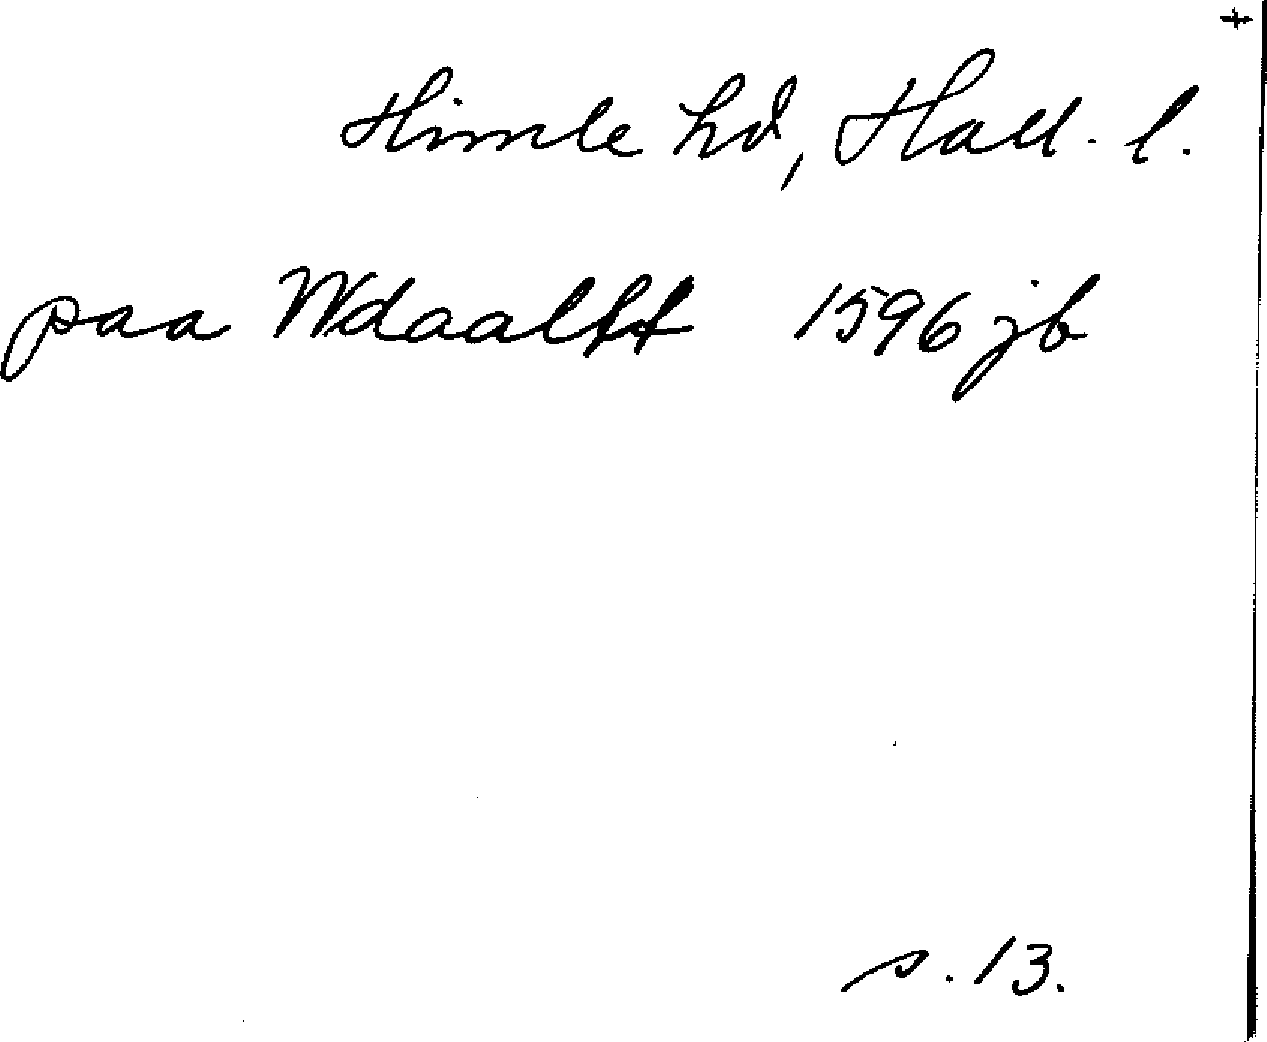 Himle hd, Hall. l.
paa Wdaallt 1596 jb
s. 13.